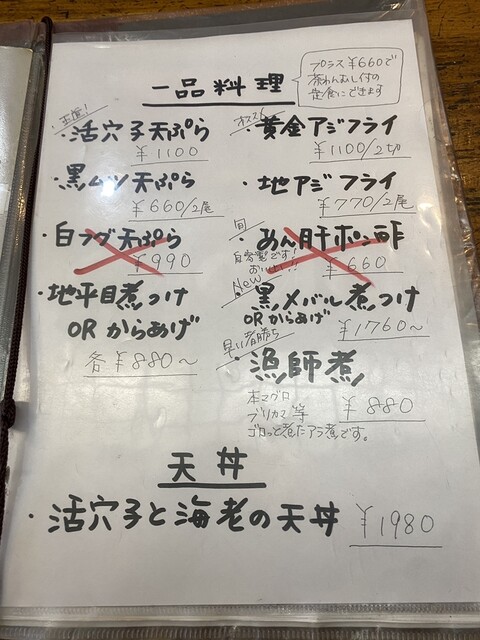 一品料理
プラス¥660で
茶わんむし付の
定食にできます
・活穴子天ぷら
¥1100
・黒ムツ天ぷら
¥660/2尾
・白フグ天ぷら
¥990
・地平目煮つけ
ORからあげ
各¥880〜
オススメ
・黄金アジフライ
¥1100/2切
・地アジフライ
¥770/2尾
旬
・あん肝ポン酢
自家製です!
おいしい!!
¥660
New
・黒メバル煮つけ
ORからあげ
¥1760〜
早い者勝ち
・漁師煮
本マグロ
ブリカマ等
ゴロっと煮たアラ煮です。
¥880
天丼
・活穴子と海老の天丼
¥1980